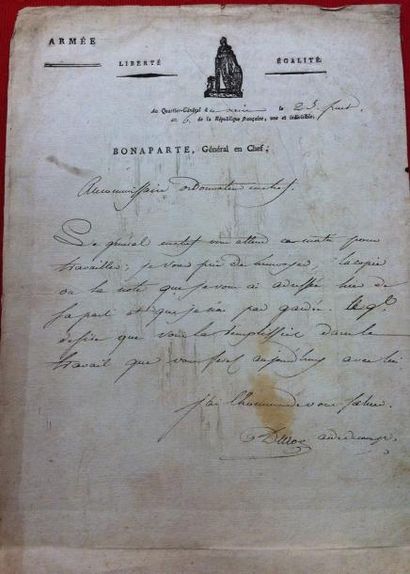 ARMÉE
LIBERTÉ ÉGALITÉ
Au Quartier-Général le 23
an 6. de la République française, une et indivisible.
BONAPARTE, Général en Chef;
Au commissaire ordonnateur en chef.
Le général en chef vous attend ce matin pour
travailler; je vous prie de m'envoyer, la copie
ou la note que je vous ai adressée hier de
sa part et que je n'ai pas gardée. le gal
désire que vous la dans le
travail que vous ferez aujourdhuy avec lui
j'ai l'honneur de vous saluer.
Duroc aide de camp.